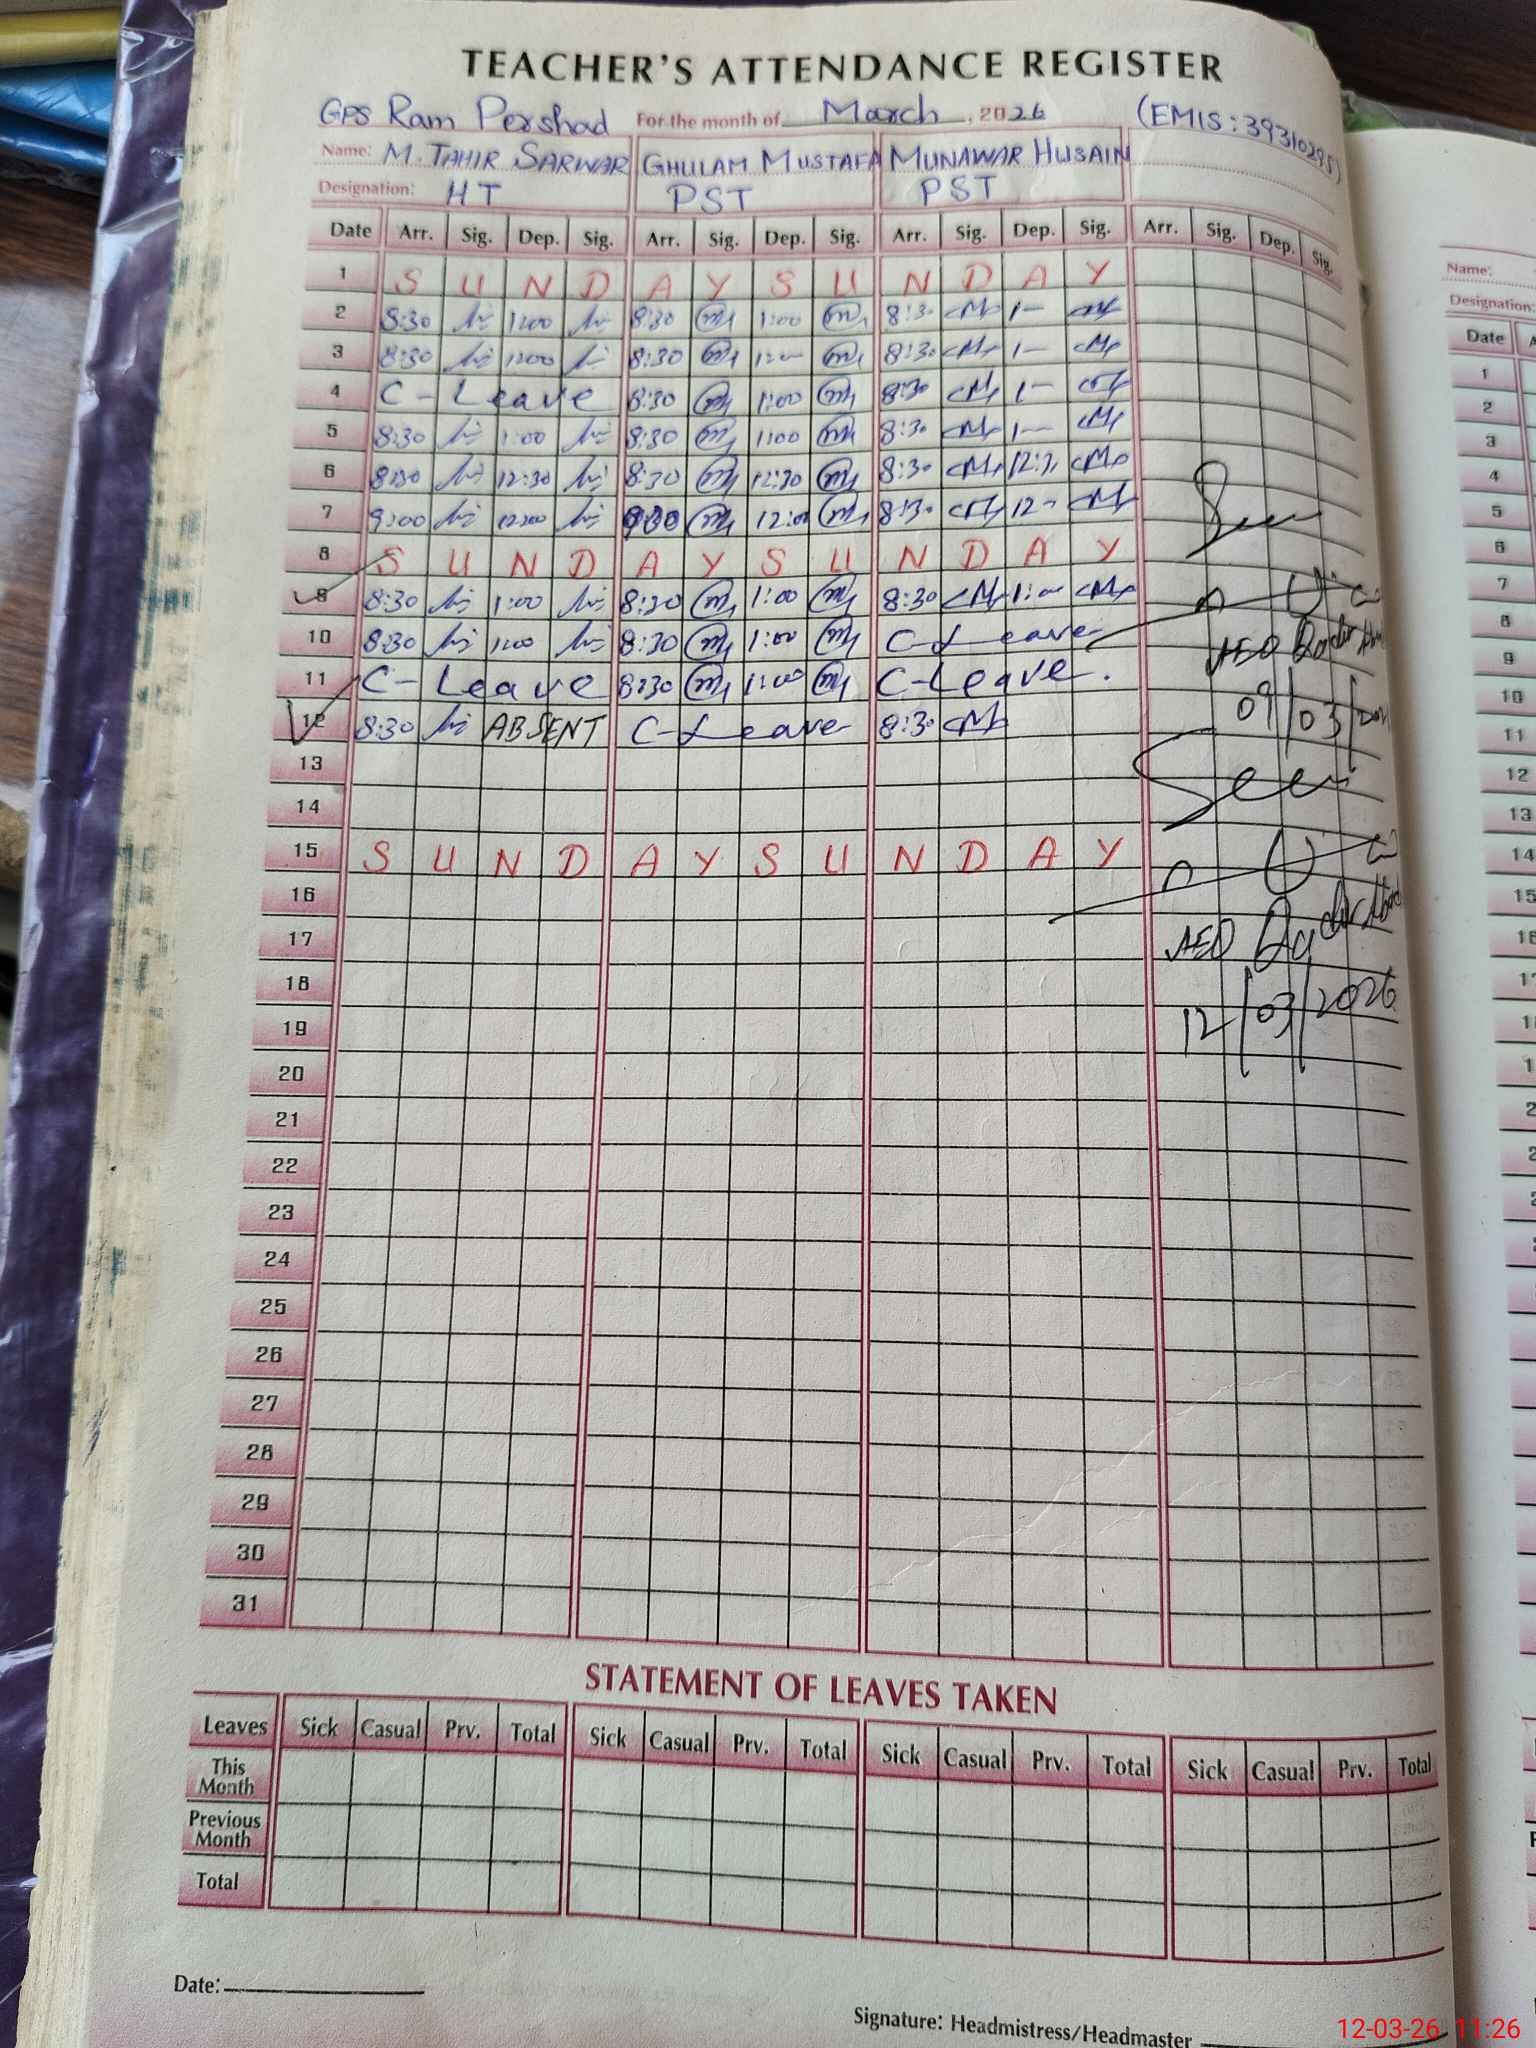 TEACHER'S ATTENDANCE REGISTER
GPS Ram Pershad For the month of March, 2026 (EMIS: 39310295)
Name: M. TAHIR SARWAR GHULAM MUSTAFA MUNAWAR HUSAIN
Designation: HT PST PST
Date Arr. Sig. Dep. Sig. Arr. Sig. Dep. Sig. Arr. Sig. Dep. Sig. Arr. Sig. Dep. Sig.
1 S U N D A Y S U N D A Y
2 8:30 1:00 8:30 1:00 8:30 1-
3 8:30 1:00 8:30 8:30 1-
4 C-Leave 8:30 1:00 8:30 1-
5 8:30 1:00 8:30 1:00 8:30 1-
6 8:30 12:30 8:30 12:30 8:30
7 9:00 12:00 12:00 8:30 12-
8 S U N D A Y S U N D A Y
9 8:30 1:00 8:30 1:00 8:30 1:00
10 8:30 1:00 8:30 1:00 C-Leave
11 C-Leave 8:30 1:00 C-Leave.
12 8:30 ABSENT C-Leave 8:30
13
14
15 S U N D A Y S U N D A Y
16
17
18
19
20
21
22
23
24
25
26
27
28
29
30
31
Seen
AEO
09/03/
Seen
AEO
12/03/2026
STATEMENT OF LEAVES TAKEN
Leaves Sick Casual Prv. Total Sick Casual Prv. Total Sick Casual Prv. Total Sick Casual Prv. Total
This Month
Previous Month
Total
Date:
Signature: Headmistress/Headmaster
12-03-26 11:26
Name:
Designation:
Date
1
2
3
4
5
6
7
8
9
10
11
12
13
14
15